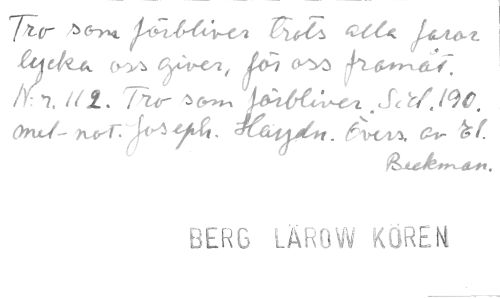 Tro som förbliver trots alla faror
lycka oss giver, för oss framåt.
N:r. 112. Tro som förbliver. Sid. 190.
met not. Joseph. Haydn. Övers. av El.
Beckman.
BERG LÄROW KÖREN